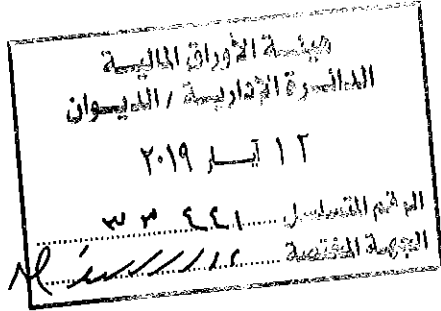 هيئة الأوراق المالية
الدائرة الإدارية / الديوان
١٢ آيار ٢٠١٩
الرقم المتسلسل
الجهة المختصة